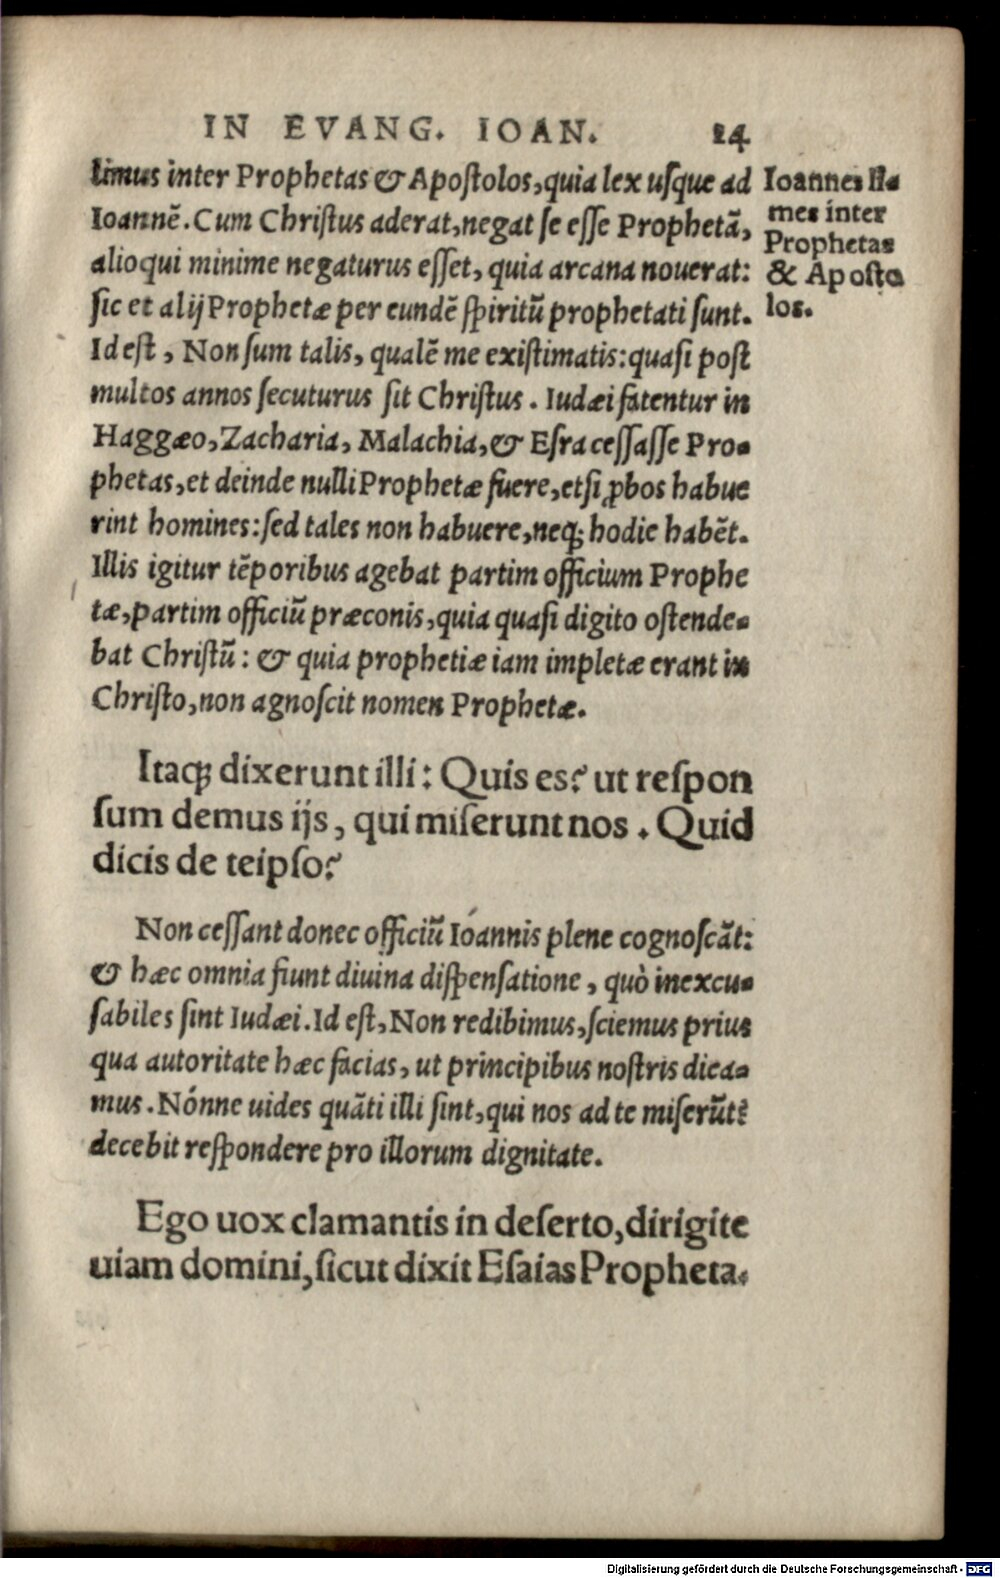 IN EVANG. IOAN. 24
limus inter Prophetas & Apoſtolos, quia lex uſque ad
Ioannē. Cum Chriſtus aderat, negat ſe eſſe Prophetā,
alioqui minime negaturus eſſet, quia arcana nouerat:
ſic et alij Prophetæ per eundē ſpiritū prophetati ſunt.
Id eſt, Non ſum talis, qualē me exiſtimatis: quaſi poſt
multos annos ſecuturus ſit Chriſtus. Iudæi fatentur in
Haggæo, Zacharia, Malachia, & Eſra ceſſaſſe Pro-
phetas, et deinde nulli Prophetæ fuere, etſi ꝓbos habue
rint homines: ſed tales non habuere, neqꝫ hodie habēt.
Illis igitur tēporibus agebat partim officium Prophe
tæ, partim officiū præconis, quia quaſi digito oſtende-
bat Chriſtū: & quia prophetiæ iam impletæ erant in
Chriſto, non agnoſcit nomen Prophetæ.
Ioannes li-
mes inter
Prophetas
& Apoſto
los.
Itaqꝫ dixerunt illi: Quis es? ut reſpon
ſum demus ijs, qui miſerunt nos. Quid
dicis de teipſo?
Non ceſſant donec officiū Ioannis plene cognoſcāt:
& hæc omnia fiunt diuina diſpenſatione, quò inexcu-
ſabiles ſint Iudæi. Id eſt, Non redibimus, ſciemus prius
qua autoritate hæc facias, ut principibus noſtris dica-
mus. Nónne uides quāti illi ſint, qui nos ad te miſerūt?
decebit reſpondere pro illorum dignitate.
Ego uox clamantis in deſerto, dirigite
uiam domini, ſicut dixit Eſaias Propheta.
Digitalisierung gefördert durch die Deutsche Forschungsgemeinschaft - DFG